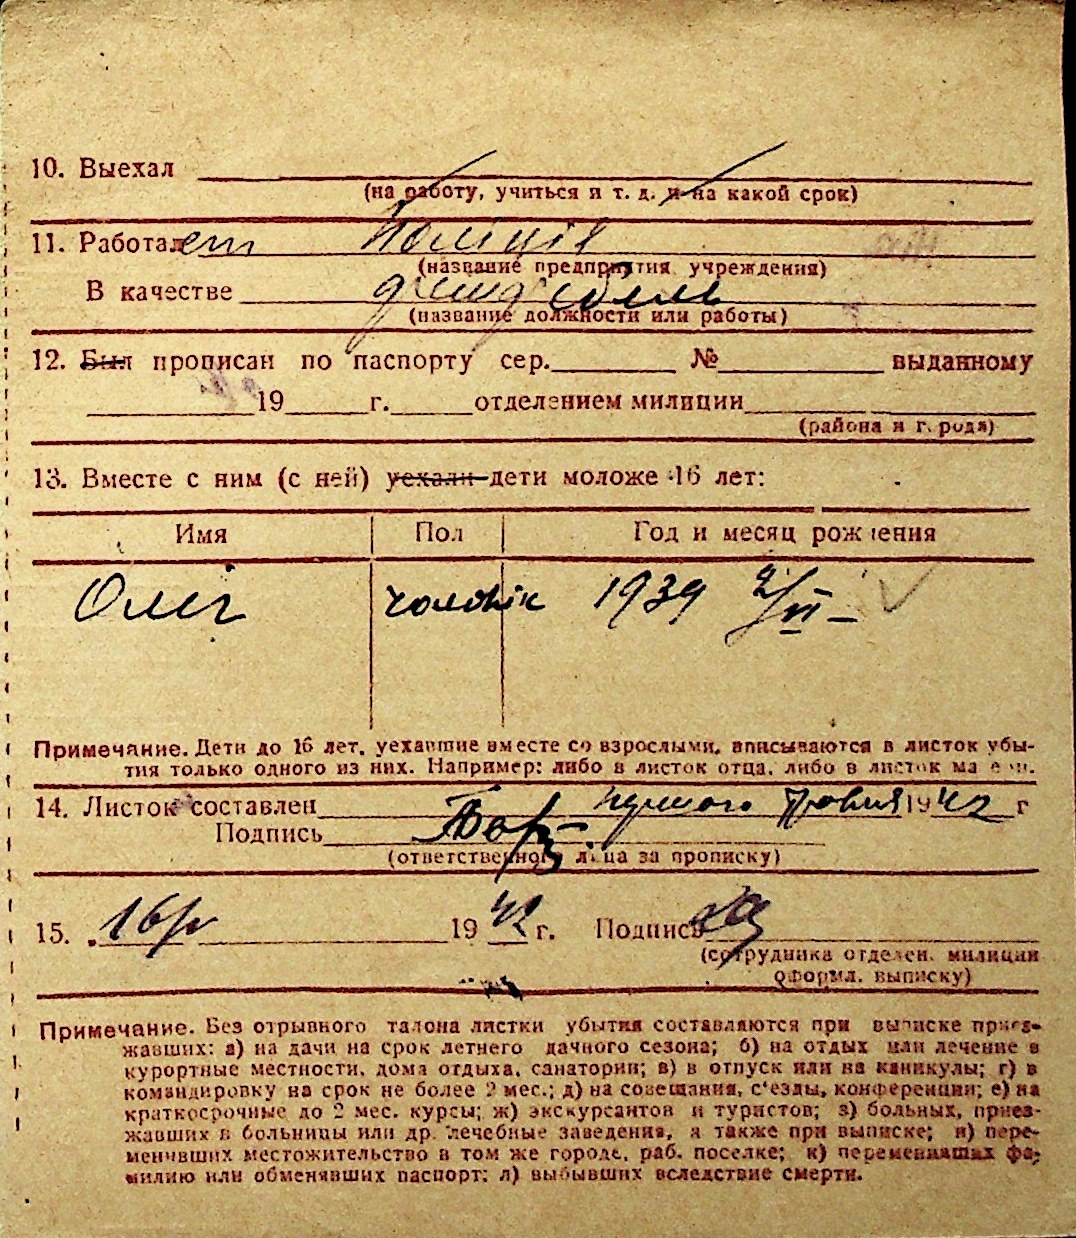 10. Выехал
(на работу, учиться и т. д. и на какой срок)
11. Работает Поліція
(название предприятия учреждения)
В качестве фельдфебель
(название должности или работы)
12. Был прописан по паспорту сер. № выданному
19 г. отделением милиции
(района и города)
13. Вместе с ним (с ней) уехали дети моложе 16 лет:
Имя Пол Год и месяц рождения
Олег чоловік 1939 2/VII
Примечание. Дети до 16 лет, уехавшие вместе со взрослыми, вписываются в листок убы-
тия только одного из них. Например: либо в листок отца, либо в листок матери.
14. Листок составлен першого 1942 г
Подпись
(ответственного лица за прописку)
15. 16/IV 1942 г. Подпись
(сотрудника отделен. милиции
оформл. выписку)
Примечание. Без отрывного талона листки убытия составляются при выписке приез-
жавших: а) на дачи на срок летнего дачного сезона; б) на отдых или лечение в
курортные местности, дома отдыха, санатории; в) в отпуск или на каникулы; г) в
командировку на срок не более 2 мес.; д) на совещания, с'езды, конференции; е) на
краткосрочные до 2 мес. курсы; ж) экскурсантов и туристов; з) больных, приез-
жавших в больницы или др. лечебные заведения, а также при выписке; и) пере-
менивших местожительство в том же городе, раб. поселке; к) переменивших фа-
милию или обменявших паспорт; л) выбывших вследствие смерти.